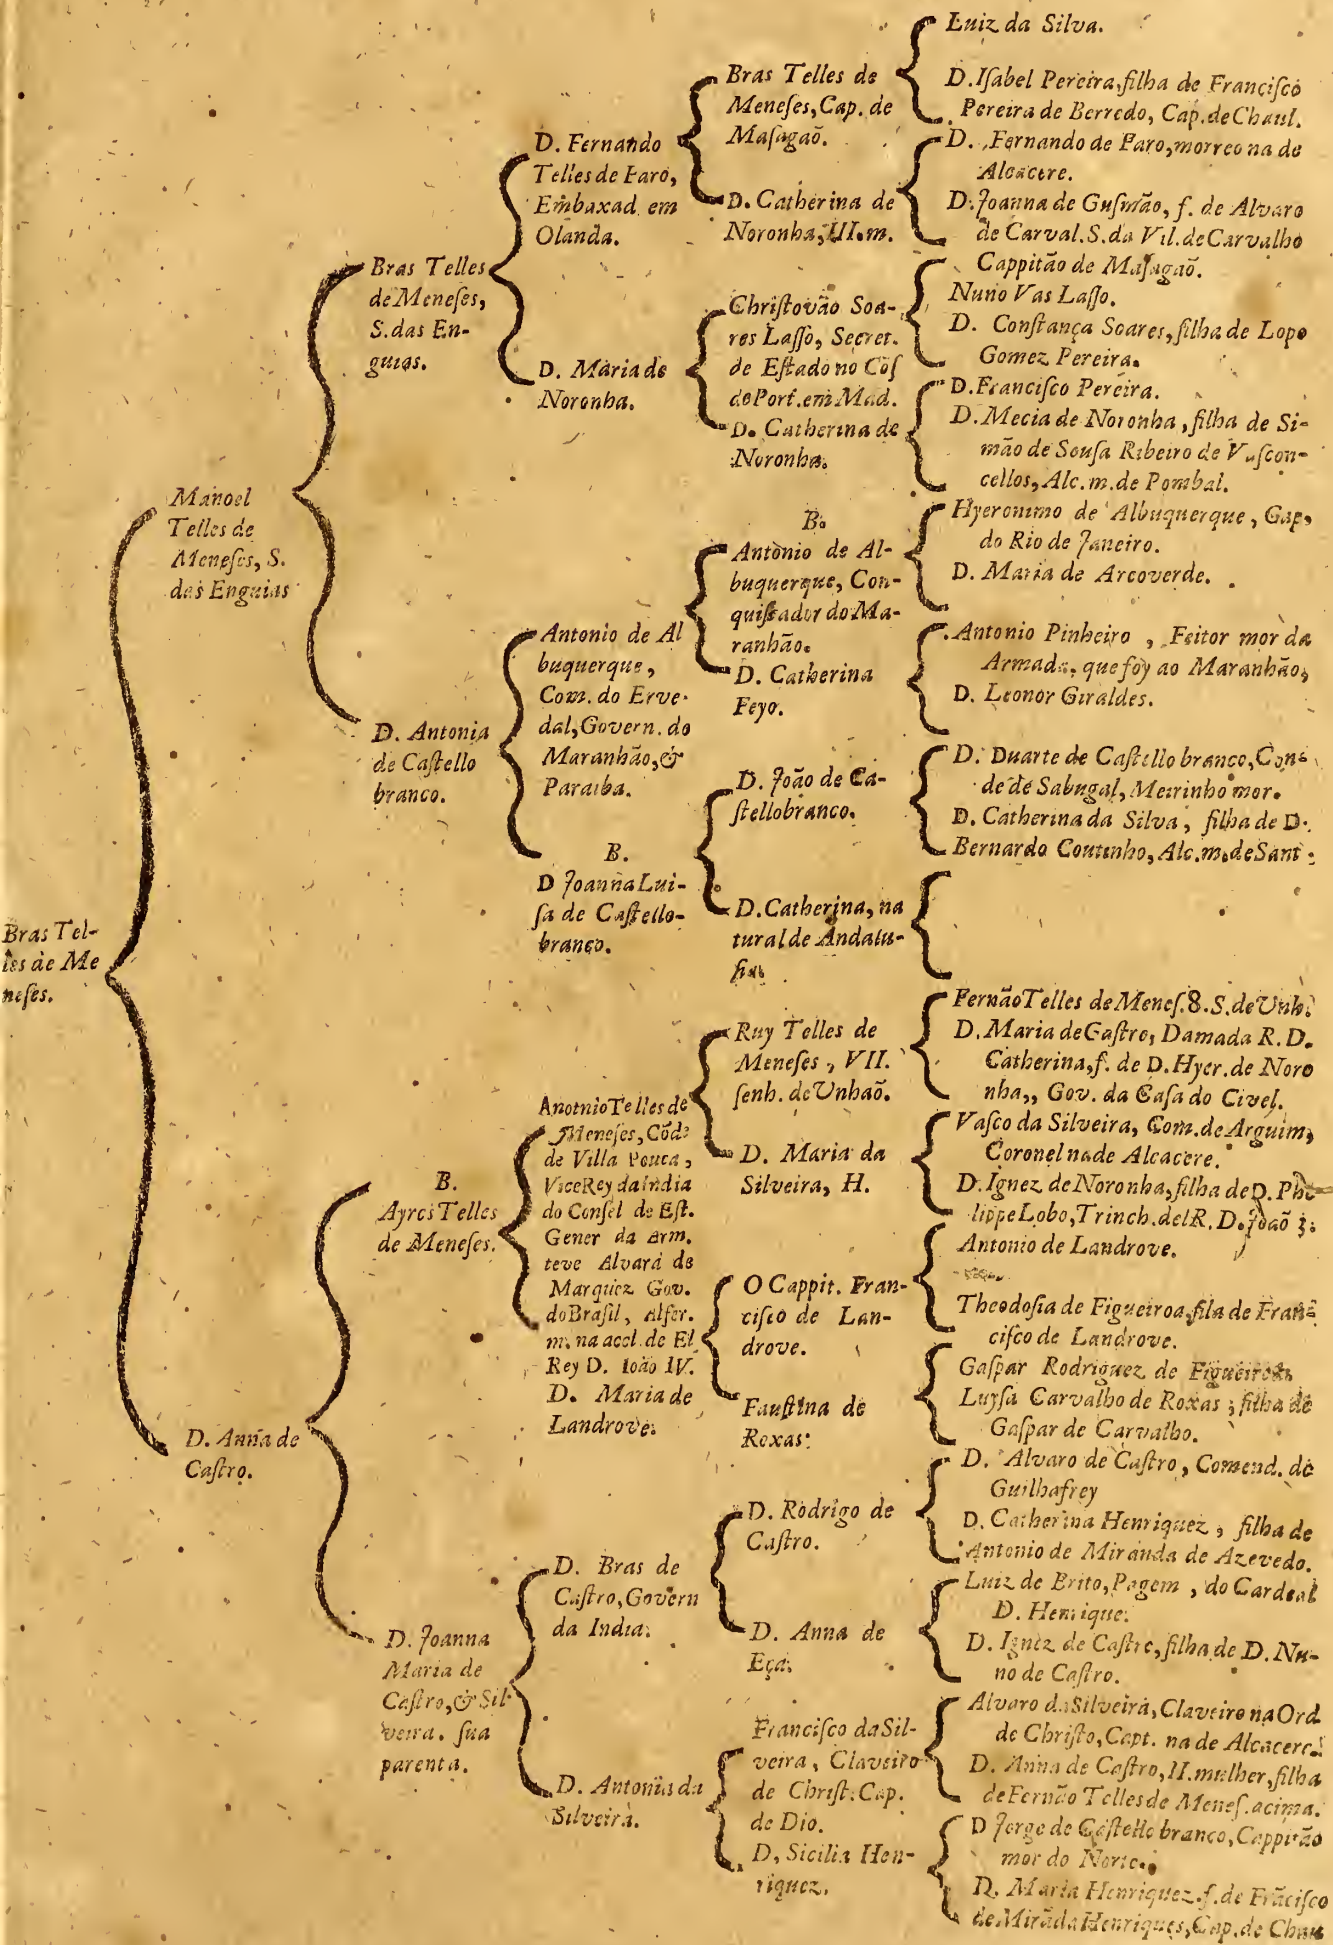 Bras Tel-
les de Me
neſes.
Manoel
Telles de
Meneſes, S.
das Enguias
D. Anna de
Caſtro.
Bras Telles
de Meneſes,
S. das En-
guias.
D. Antonia
de Caſtello
branco.
B.
Ayres Telles
de Meneſes.
D. Joanna
Maria de
Caſtro, & Sil-
veira. ſua
parenta.
D. Fernando
Telles de Faro,
Embaxad. em
Olanda.
D. Maria de
Noronha.
Antonio de Al
buquerque,
Com. do Erve-
dal, Govern. do
Maranhão, &
Paraiba.
B.
D Joanna Lui-
ſa de Caſtello-
branco.
Anotnio Telles de
Meneſes, Cõde
de Villa Pouca,
ViceRey da India
do Conſel de Eſt.
Gener da Arm.
teve Alvará de
Marquez Gov.
do Braſil, Alfer.
m. na accl. de El
Rey D. Ioão IV.
D. Maria de
Landrove.
D. Bras de
Caſtro, Govern
da India.
D. Antonia da
Silveira.
Bras Telles de
Meneſes, Cap. de
Maſagaõ.
D. Catherina de
Noronha, III. m.
Chriſtovão Soa-
res Laſſo, Secret.
de Eſtado no Cõſ
de Port. em Mad.
D. Catherina de
Noronha.
B.
Antonio de Al-
buquerque, Con-
quiſtador do Ma-
ranhão.
D. Catherina
Feyo.
D. João de Ca-
ſtellobranco.
D. Catherina, na
tural de Andalu-
ſia.
Ruy Telles de
Meneſes, VII.
ſenh. de Unhaõ.
D. Maria da
Silveira, H.
O Cappit. Fran-
ciſco de Lan-
drove.
Fauſtina de
Roxas:
D. Rodrigo de
Caſtro.
D. Anna de
Eça.
Franciſco da Sil-
veira, Claveiro
de Chriſt. Cap.
de Dio.
D. Sicilia Hen-
riquez.
Luiz da Silva.
D. Iſabel Pereira, filha de Franciſco
Pereira de Berredo, Cap. de Chaul.
D. Fernando de Faro, morreo na de
Alcacere.
D. Joanna de Guſmão, f. de Alvaro
de Carval. S. da Vil. de Carvalho
Cappitão de Maſagaõ.
Nuno Vas Laſſo.
D. Conſtança Soares, filha de Lopo
Gomez Pereira.
D. Franciſco Pereira.
D. Mecia de Noronha, filha de Si-
mão de Souſa Ribeiro de Vaſcon-
cellos, Alc. m. de Pombal.
Hyeronimo de Albuquerque, Cap.
do Rio de Janeiro.
D. Maria de Arcoverde.
Antonio Pinheiro, Feitor mor da
Armada, que foy ao Maranhão,
D. Leonor Giraldes.
D. Duarte de Caſtello branco, Con-
de de Sabugal, Meirinho mor.
D. Catherina da Silva, filha de D.
Bernardo Coutinho, Alc. m. de Sant.
Fernão Telles de Meneſ. 8. S. de Unh.
D. Maria de Caſtro, Dama da R. D.
Catherina, f. de D. Hyer. de Noro
nha,, Gov. da Caſa do Civel.
Vaſco da Silveira, Com. de Arguim,
Coronel na de Alcacere.
D. Ignez de Noronha, filha de D. Phe
lippe Lobo, Trinch. del R. D. Joaõ 3.
Antonio de Landrove.
Theodoſia de Figueiroa, fila de Fran-
ciſco de Landrove.
Gaſpar Rodriguez de Figueiroa
Luyſa Carvalho de Roxas, filha de
Gaſpar de Carvalho.
D. Alvaro de Caſtro, Comend. de
Guilhafrey
D. Catherina Henriquez, filha de
Antonio de Miranda de Azevedo.
Luiz de Brito, Pagem, do Cardeal
D. Henrique.
D. Ignez de Caſtro, filha de D. Nu-
no de Caſtro.
Alvaro da Silveira, Claveiro na Ord.
de Chriſto, Capt. na de Alcacere.
D. Anna de Caſtro, II. mulher, filha
de Fernão Telles de Meneſ. acima.
D Jorge de Caſtello branco, Cappitão
mor do Norte.
D. Maria Henriquez. f. de Frãciſco
de Mirãda Henriques, Cap. de Chau